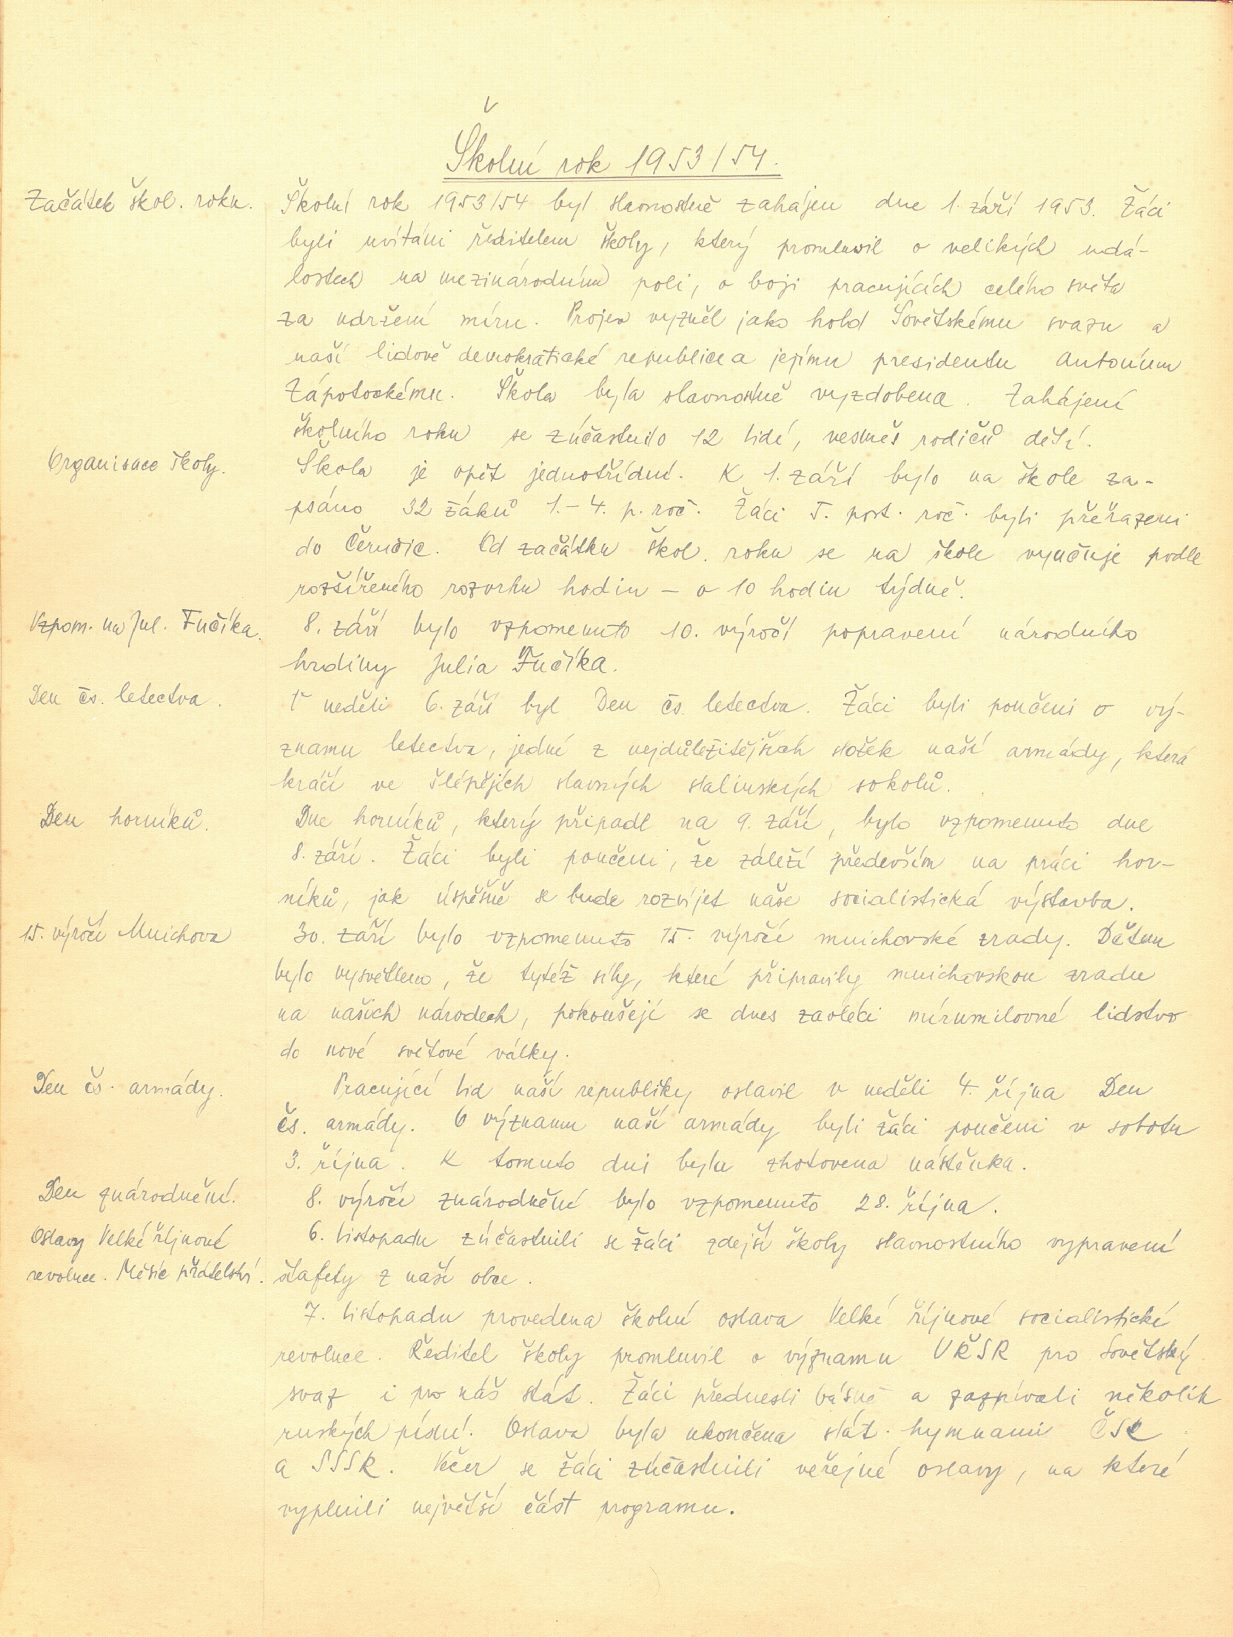 Školní rok 1953/54.
Začátek škol. roku.
Školní rok 1953/54 byl slavnostně zahájen dne 1. září 1953. Žáci
byli uvítáni ředitelem školy, který promluvil o velikých udá-
lostech na mezinárodním poli, o boji pracujících celého světa
za udržení míru. Projev vyzněl jako hold Sovětskému svazu a
naší lidově demokratické republice a jejímu presidentu Antonínu
Zápotockému. Škola byla slavnostně vyzdobena. Zahájení
školního roku se zúčastnilo 12 lidí, vesměs rodičů dětí.
Organisace školy.
Škola je opět jednotřídní. K 1. září bylo na škole za-
psáno 32 žáků 1.-4. p. roč. Žáci 5. post. roč. byli přeřazeni
do Černčic. Od začátku škol. roku se na škole vyučuje podle
rozšířeného rozvrhu hodin - o 10 hodin týdně.
Vzpom. na Jul. Fučíka.
8. září bylo vzpomenuto 10. výročí popravení národního
hrdiny Julia Fučíka.
Den čs. letectva.
V neděli 6. září byl Den čs. letectva. Žáci byli poučeni o vý-
znamu letectva, jedné z nejdůležitějších složek naší armády, která
kráčí ve šlépějích slavných stalinských sokolů.
Den horníků.
Dne horníků, který připadl na 9. září, bylo vzpomenuto dne
8. září. Žáci byli poučeni, že záleží především na práci hor-
níků, jak úspěšně se bude rozvíjet naše socialistická výstavba.
15. výročí Mnichova
30. září bylo vzpomenuto 15. výročí mnichovské zrady. Dětem
bylo vysvětleno, že tytéž síly, které připravily mnichovskou zradu
na našich národech, pokoušejí se dnes zavléci mírumilovné lidstvo
do nové světové války.
Den čs. armády.
Pracující lid naší republiky oslavil v neděli 4. října Den
čs. armády. O významu naší armády byli žáci poučeni v sobotu
3. října. K tomuto dni byla zhotovena nástěnka.
Den znárodnění.
8. výročí znárodnění bylo vzpomenuto 28. října.
Oslavy Velké říjnové
revoluce. Měsíc přátelství.
6. listopadu zúčastnili se žáci zdejší školy slavnostního vypravení
štafety z naší obce.
7. listopadu provedena školní oslava Velké říjnové socialistické
revoluce. Ředitel školy promluvil o významu VŘSR pro Sovětský
svaz i pro náš stát. Žáci přednesli básně a zazpívali několik
ruských písní. Oslava byla ukončena stát. hymnami ČSR
a SSSR. Večer se žáci zúčastnili veřejné oslavy, na které
vyplnili největší část programu.